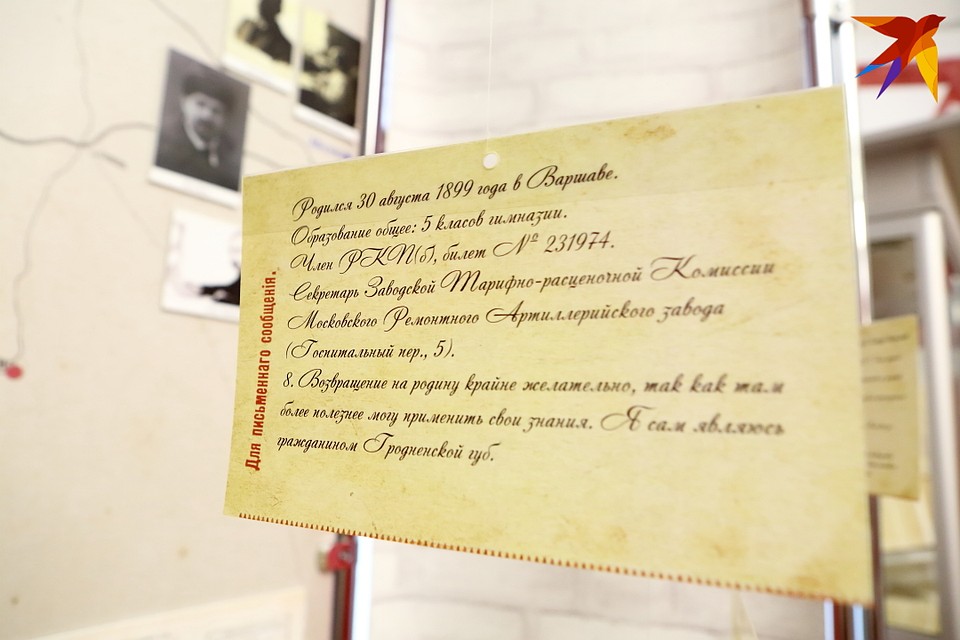 Родился 30 августа 1899 года в Варшаве.
Образование общее: 5 класов гимназии.
Член РКП(б), билет № 231974.
Секретарь Заводской Тарифно-расценочной Комиссии
Московского Ремонтного Артиллерийского завода
(Госпитальный пер., 5).
8. Возвращение на родину крайне желательно, так как там
более полезнее могу применить свои знания. Я сам являюсь
гражданином Гродненской губ.
Для письменнаго сообщенія.